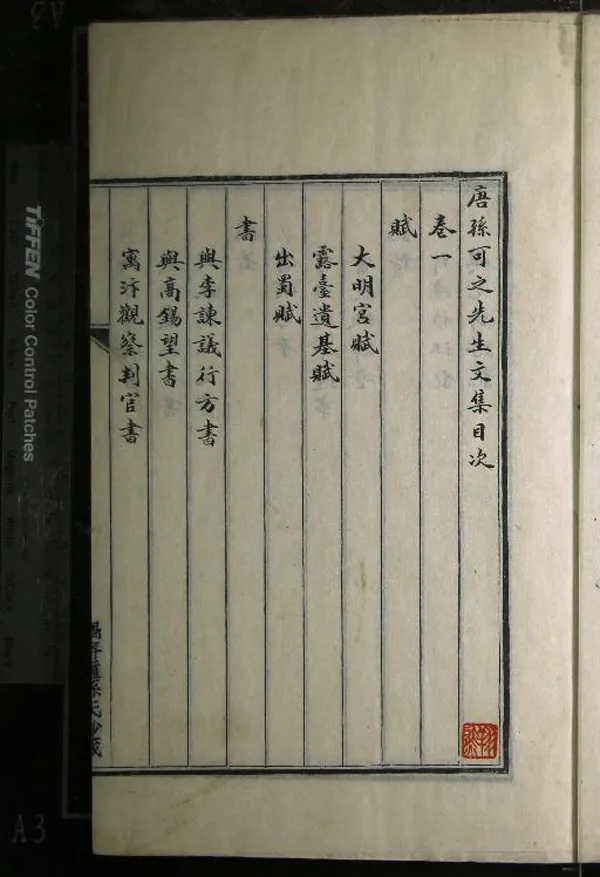 唐孫可之先生文集目次
卷一
賦
大明宮賦
露臺遺基賦
出蜀賦
書
與李諫議行方書
與高錫望書
寓汴觀察判官書
TIFFEN Color Control Patches
A3